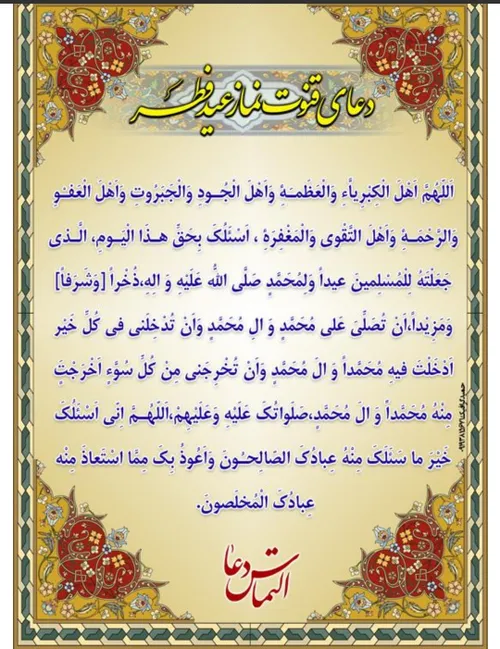 دعای قنوت نماز عید فطر
اَللّهُمَّ اَهْلَ الْکِبْرِیاَّءِ وَالْعَظَمَـةِ وَاَهْلَ الْجُـودِ وَالْجَبَرُوتِ وَاَهْلَ الْعَفْـوِ
وَالرَّحْمَـةِ وَاَهْلَ التَّقْوی وَالْمَغْفِرَةِ ، اَسْئَلُکَ بِحَقِّ هـذَا الْیَـومِ، الَّـذی
جَعَلْتَهُ لِلْمُسْلِمینَ عیداً وَلِمُحَمَّدٍ صَلَّی اللّه عَلَیْهِ وَ الِهِ،ذُخْراً [وَشَرَفاً]
وَمَزیْداً،اَنْ تُصَلِّیَ عَلی مُحَمَّدٍ وَ الِ مُحَمَّدٍ وَاَنْ تُدْخِلَنی فی کُلِّ خَیْرٍ
اَدْخَلْتَ فیهِ مُحَمَّداً وَ الَ مُحَمَّدٍ وَاَنْ تُخْرِجَنی مِن کُلِّ سُوَّءٍ اَخْرَجْتَ
مِنْهُ مُحَمَّداً وَ الَ مُحَمَّدٍ،صَلَواتُکَ عَلَیْهِ وَعَلَیْهِمْ،اَللّهُـمَّ اِنّی اَسْئَلُکَ
خَیْرَ ما سَئَلَکَ مِنْهُ عِبادُکَ الصّالِحـُونَ وَاَعُوذُ بِکَ مِمَّا اسْتَعاذَ مِنْه
عِبادُکَ الْمُخلَصونَ.
التماس دعا